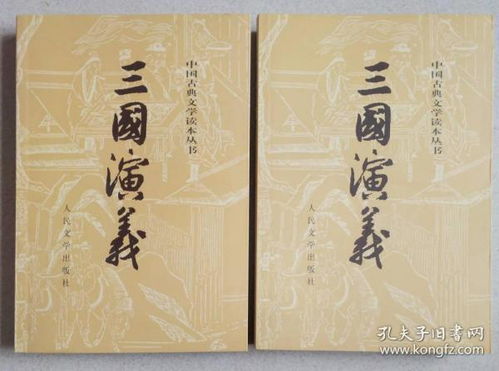 中国古典文学读本丛书
三國演義
人民文学出版社
中国古典文学读本丛书
三國演義
人民文学出版社
孔夫子旧书网
www.kongfz.com